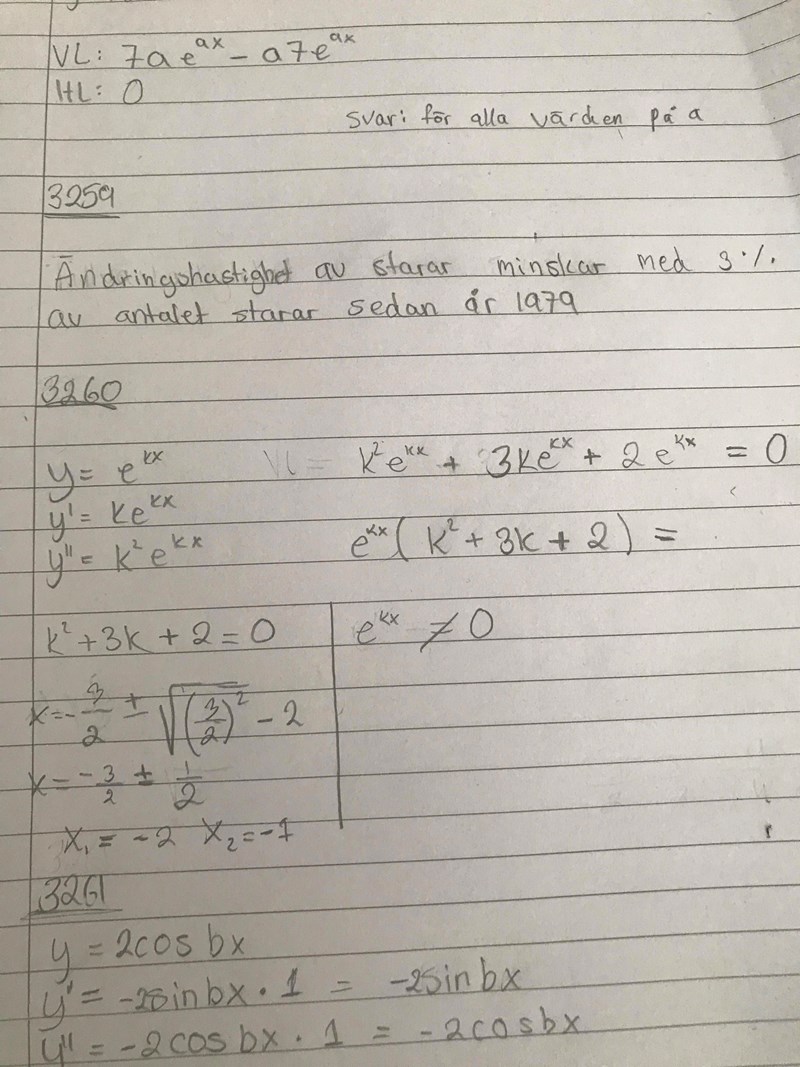 VL: 7ae^{ax} - a7e^{ax}
HL: 0
svar: för alla värden på a
3259
Ändringshastighet av starar minskar med 3%
av antalet starar sedan år 1979
3260
y = e^{kx}
VL = k²e^{kx} + 3ke^{kx} + 2e^{kx} = 0
y' = ke^{kx}
y'' = k²e^{kx}
e^{kx}(k² + 3k + 2) =
k² + 3k + 2 = 0
e^{kx} ≠ 0
x = -3/2 ± √(3/2)² - 2
x = -3/2 ± 1/2
x₁ = -2 x₂ = -1
3261
y = 2cos bx
y' = -2sin bx · 1 = -2sin bx
y'' = -2cos bx · 1 = -2cos bx